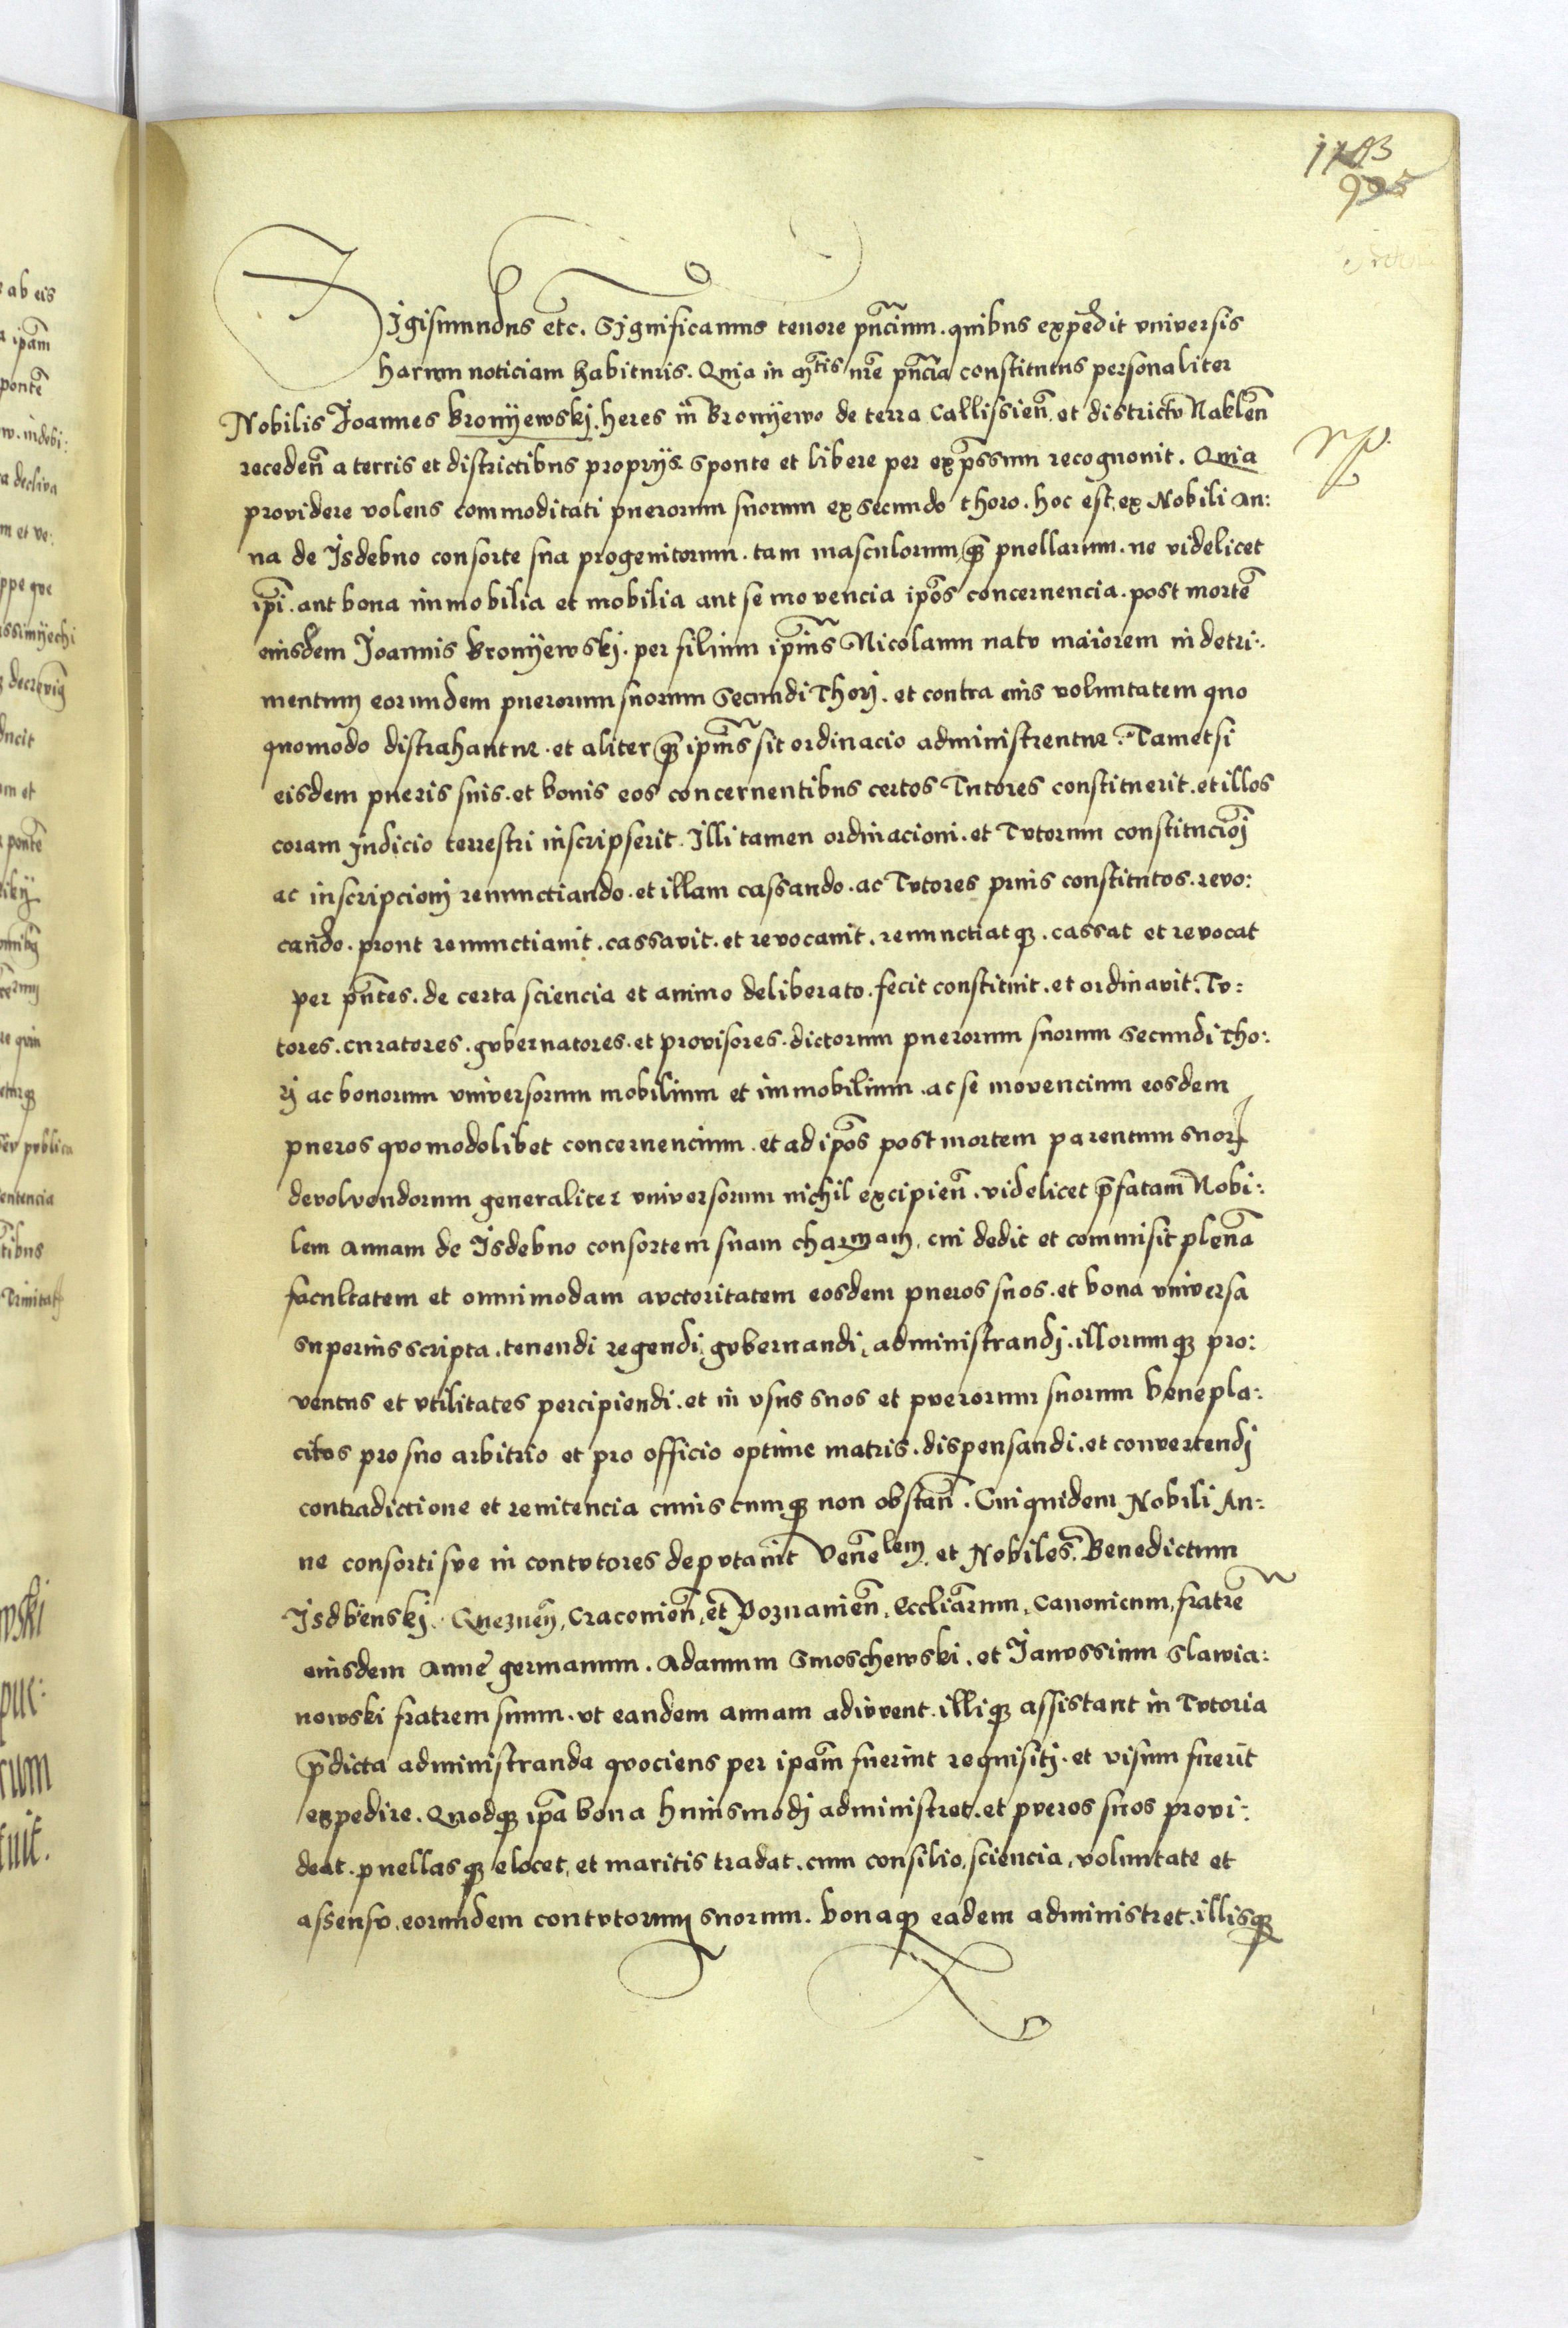 Sigismundus etc. Significamus tenore pñcium. quibus expedit vniversis
harum noticiam habituris. Quia in M̃tis nr̃e pñcia constitutus personaliter
Nobilis Joannes Bronyewskj. heres in Bronyewo de terra Callissień. et districtv Nakleñ
recedeñ a terris et districtibus proprijs. sponte et libere per exp̃ssum recognouit. Quia
providere volens commoditati puerorum suorum ex secundo thoro. hoc est, ex Nobili An:
na de Jsdebno consorte sua progenitorum. tam masculorum q̃ȝ puellarum. ne videlicet
ip̃i. aut bona immobilia et mobilia aut se movencia ip̃os concernencia. post mortẽ
eiusdem Joannis Bronyewskj. per filium ip̃ius Nicolaum natv maiorem in detri:
mentum eorundem puerorum suorum secundi Thorj. et contra eius voluntatem quo
quomodo distrahantur. et aliter q̃ȝ ip̃ius sit ordinacio administrentur. Tametsi
eisdem pueris suis. et bonis eos concernentibus certos Tutores constituerit. et illos
coram Judicio terrestri inscripserit. Illi tamen ordinacioni. et Tvtorum constitucio̅j
ac inscripcionj renunctiando. et illam cassando. ac Tvtores prius constitutos. revo:
cando. prout renunctiauit. cassavit. et revocauit. renunctiatqȝ. cassat et revocat
per pñtes. de certa sciencia et animo deliberato. fecit constituit. et ordinavit. Tv:
tores. curatores. gvbernatores. et provisores. dictorum puerorum suorum secundi Tho:
rj ac bonorum vniversorum mobilium et immobilium. ac se movencium eosdem
pueros qvomodolibet concernencium. et ad ip̃os post mortem parentum suorꝝ
devolvendorum generaliter vniversorum nichil excipień. videlicet p̃fatam Nobi:
lem Annam de Jsdebno consortem suam charmam, cui dedit et commisit plenã
facultatem et omnimodam avctoritatem eosdem pueros suos. et bona vniversa
superius scripta. tenendi regendi, gvbernandi, administrandj. illorumqȝ pro:
ventus et vtilitates percipiendi. et in vsus suos et pverorum suorum benepla:
citos pro suo arbitrio et pro officio optime matris. dispensandi. et convertendj
contradictione et renitencia cuiuscumqȝ non obstañ. Cuiquidem Nobili An:
ne consorti sve in contvtores depvtauit Veñelem. et Nobiles. Benedictum
Jsdbienskj. Gnezneñ, Cracouieñ, et Poznanieñ, Eccliarum, Canonicum, fratrẽ
eiusdem Anne germanum. Adamum Smoschewski. et Janvssium Slawia:
nowski fratrem suum. vt eandem Annam adivvent. illiqȝ assistant in Tvtoria
p̃dicta administranda qvociens per ip̃am fuerint requisitj. et visum fuerit
expedire. Quodqȝ ip̃a bona huiusmodj administret. et pveros suos provi:
deat. puellasqȝ elocet, et maritis tradat. cum consilio, sciencia, voluntate et
assensv. eorundem contvtorum suorum. Bonaqȝ eadem administret. illisqȝ